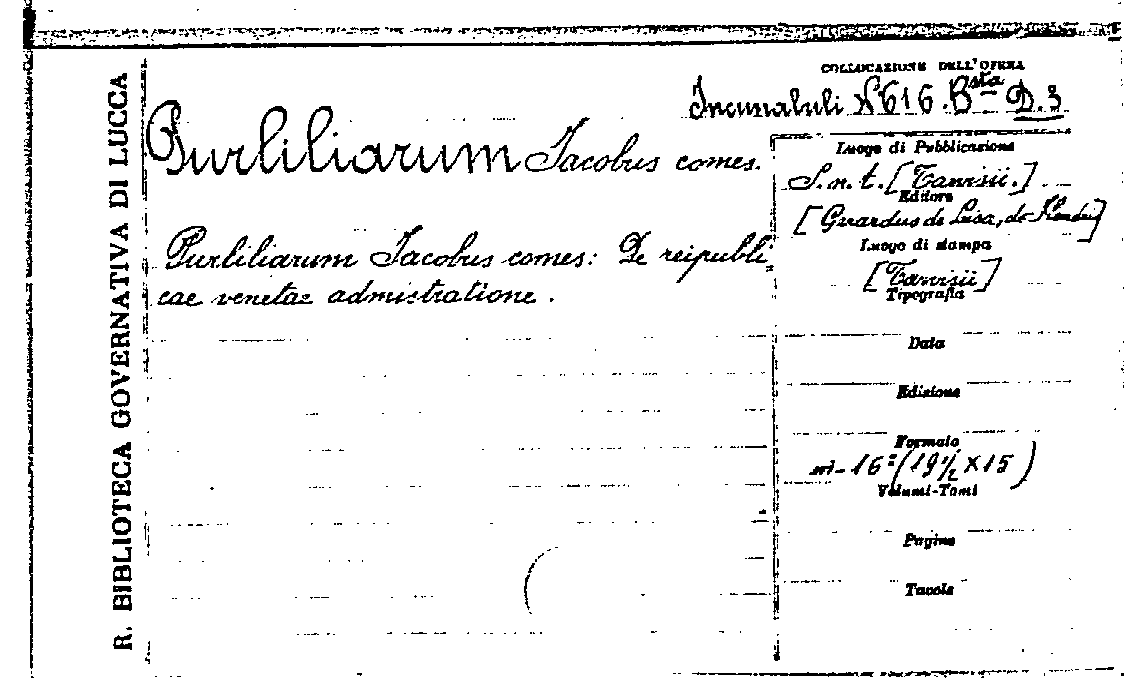 R. BIBLIOTECA GOVERNATIVA DI LUCCA
COLLOCAZIONE DELL'OPERA
Incunabuli N 616. Bsta D.3
Purliliarum Jacobus comes.
Luogo di Pubblicazione
S.n.t. [Tarvisii.]
Editore
[Gerardus de Lisa, de Flandria]
Purliliarum Jacobus comes: De reipubli-
cae venetae admistratione.
Luogo di stampa
[Tarvisii]
Tipografia
Data
Edizione
Formato
in-16º (19 1/2 X 15)
Volumi-Tomi
Pagine
Tavole